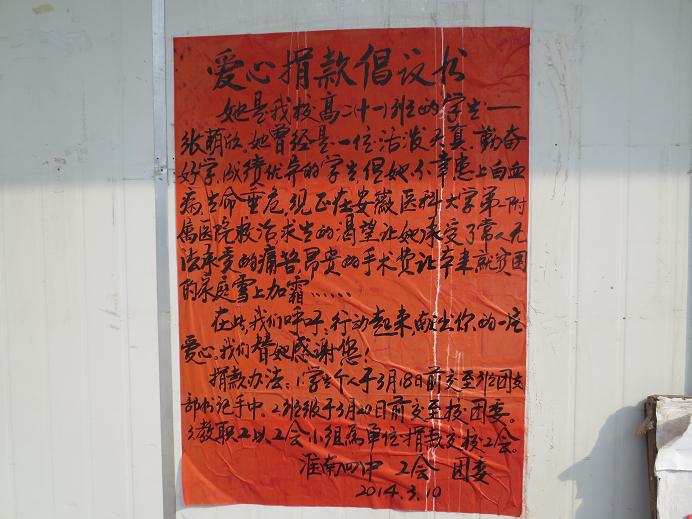 爱心捐款倡议书
她是我校高二(十一)班的学生——
张萌欣,她曾经是一位活泼天真、勤奋
好学,成绩优异的学生但她不幸患上白血
病,生命垂危,现正在安徽医科大学第一附
属医院救治求生的渴望让她承受了常人无
法承受的痛苦昂贵的手术费让本来就贫困
的家庭雪上加霜……
在此,我们呼吁:行动起来,献出你的一片
爱心,我们替她感谢您!
捐款办法:1.学生个人于3月18日前交至班团支
部书记手中。2.班级于3月20日前交至校团委。
3.教职工以工会小组为单位捐款交校工会。
淮南四中 工会 团委
2014.3.10